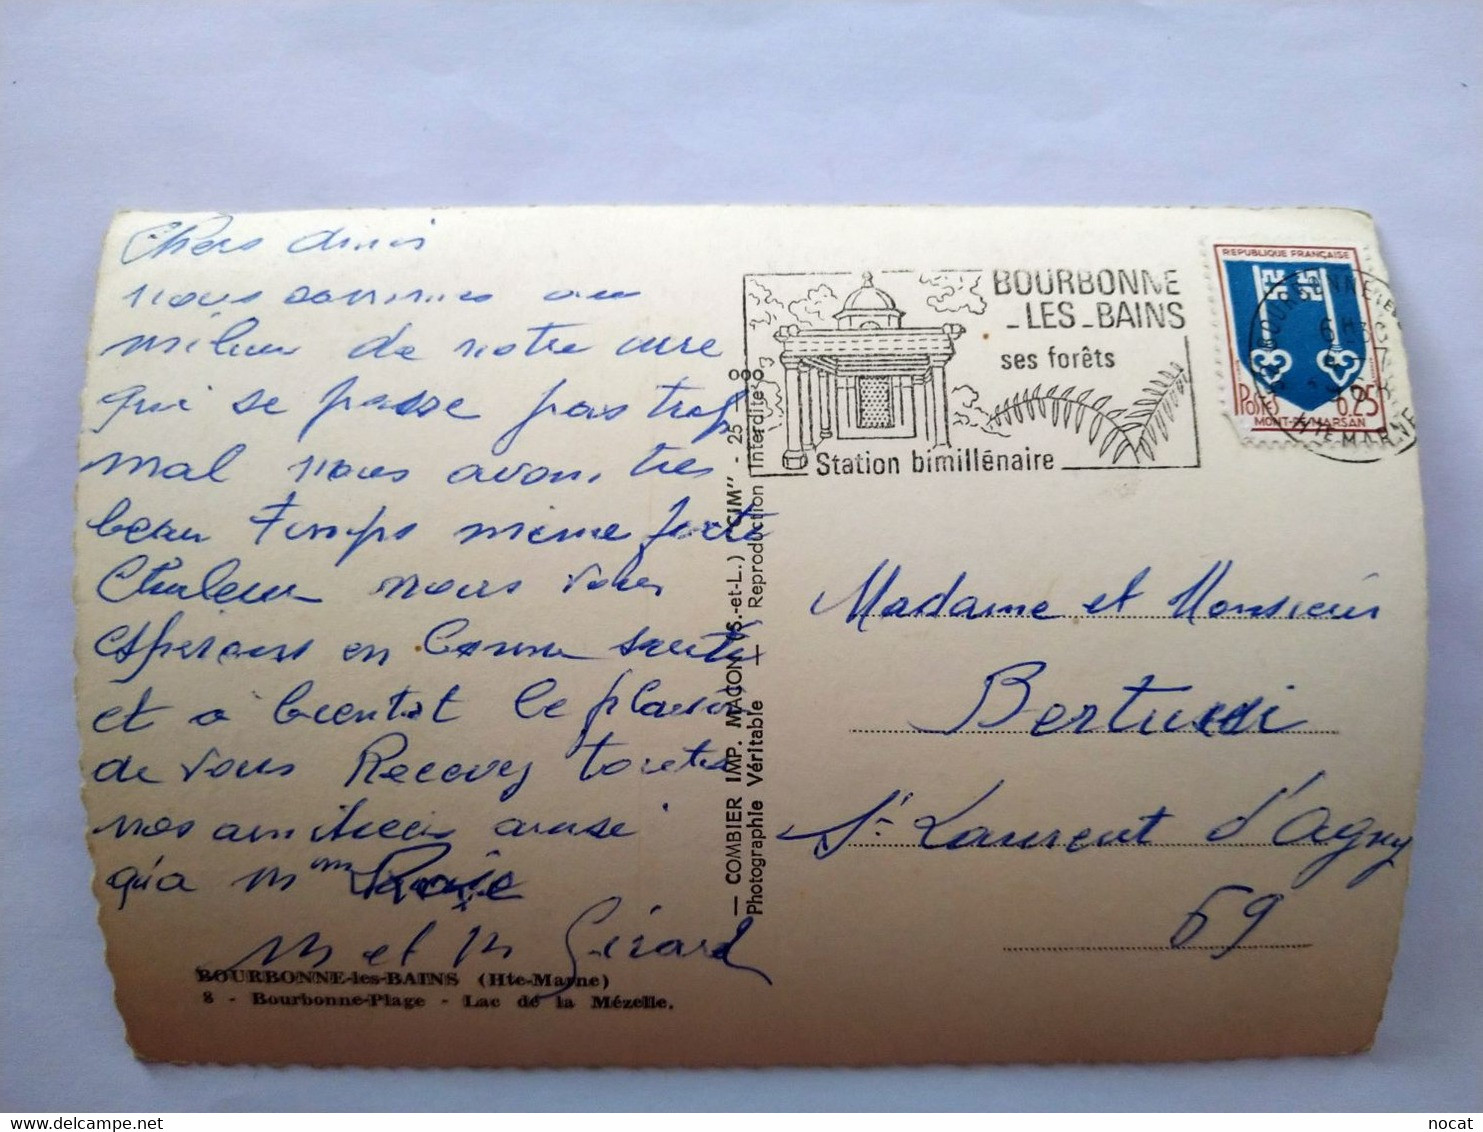 Chers amis
nous sommes au
milieu de notre cure
qui se passe pas trop
mal nous avons très
beau temps même forte
Chaleur nous vous
espérons en bonne santé
et a bientot le plaisir
de vous Recevoir toutes
nos amitiées ainsi
qu'a Mme
M et M Girard
BOURBONNE-les-BAINS (Hte-Marne)
8 - Bourbonne-Plage - Lac de la Mézelle.
— COMBIER IMP. MACON (S.-et-L.) "CIM" - 25 -
Photographie Véritable — Reproduction Interdite
BOURBONNE
-LES-BAINS
ses forêts
Station bimillénaire
REPUBLIQUE FRANÇAISE
POSTES 0.25
MONT-DE-MARSAN
BOURBONNE LES
6H
HTE MARNE
Madame et Monsieur
Bertucci
St Laurent d'Agny
69
delcampe.net
nocat